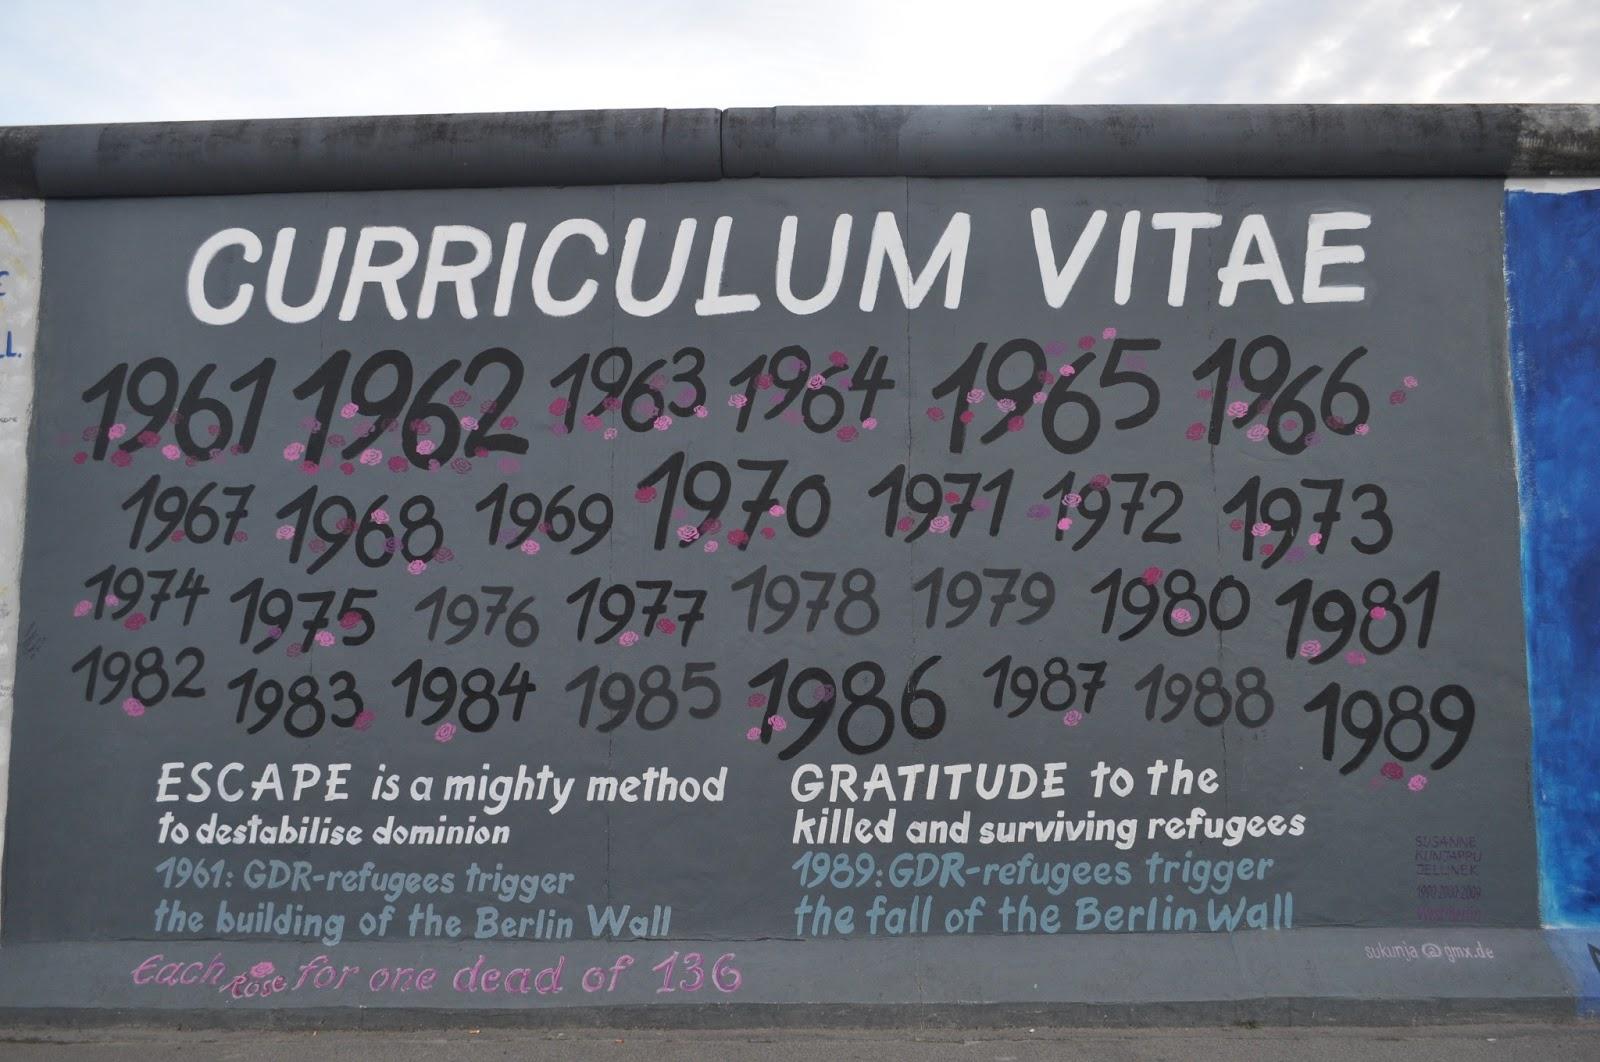 CURRICULUM VITAE
1961 1962 1963 1964 1965 1966
1967 1968 1969 1970 1971 1972 1973
1974 1975 1976 1977 1978 1979 1980 1981
1982 1983 1984 1985 1986 1987 1988 1989
ESCAPE is a mighty method
to destabilise dominion
1961: GDR-refugees trigger
the building of the Berlin Wall
GRATITUDE to the
killed and surviving refugees
1989: GDR-refugees trigger
the fall of the Berlin Wall
Each rose for one dead of 136
SUSANNE
KUNJAPPU
JELLINEK
1990-2000-2009
Westberlin
sukunja@gmx.de